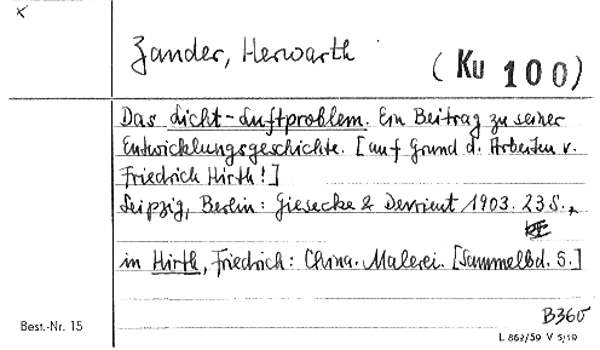 x
Zander, Herwarth
(Ku 100)
Das Licht-Luftproblem. Ein Beitrag zu seiner
Entwicklungsgeschichte. [auf Grund d. Arbeiten v.
Friedrich Hirth!]
Leipzig, Berlin: Giesecke & Devrient 1903. 23 S.
in Hirth, Friedrich: China. Malerei. [Sammelbd. 5.]
B360
Best.-Nr. 15
L 862/59 V 5/19